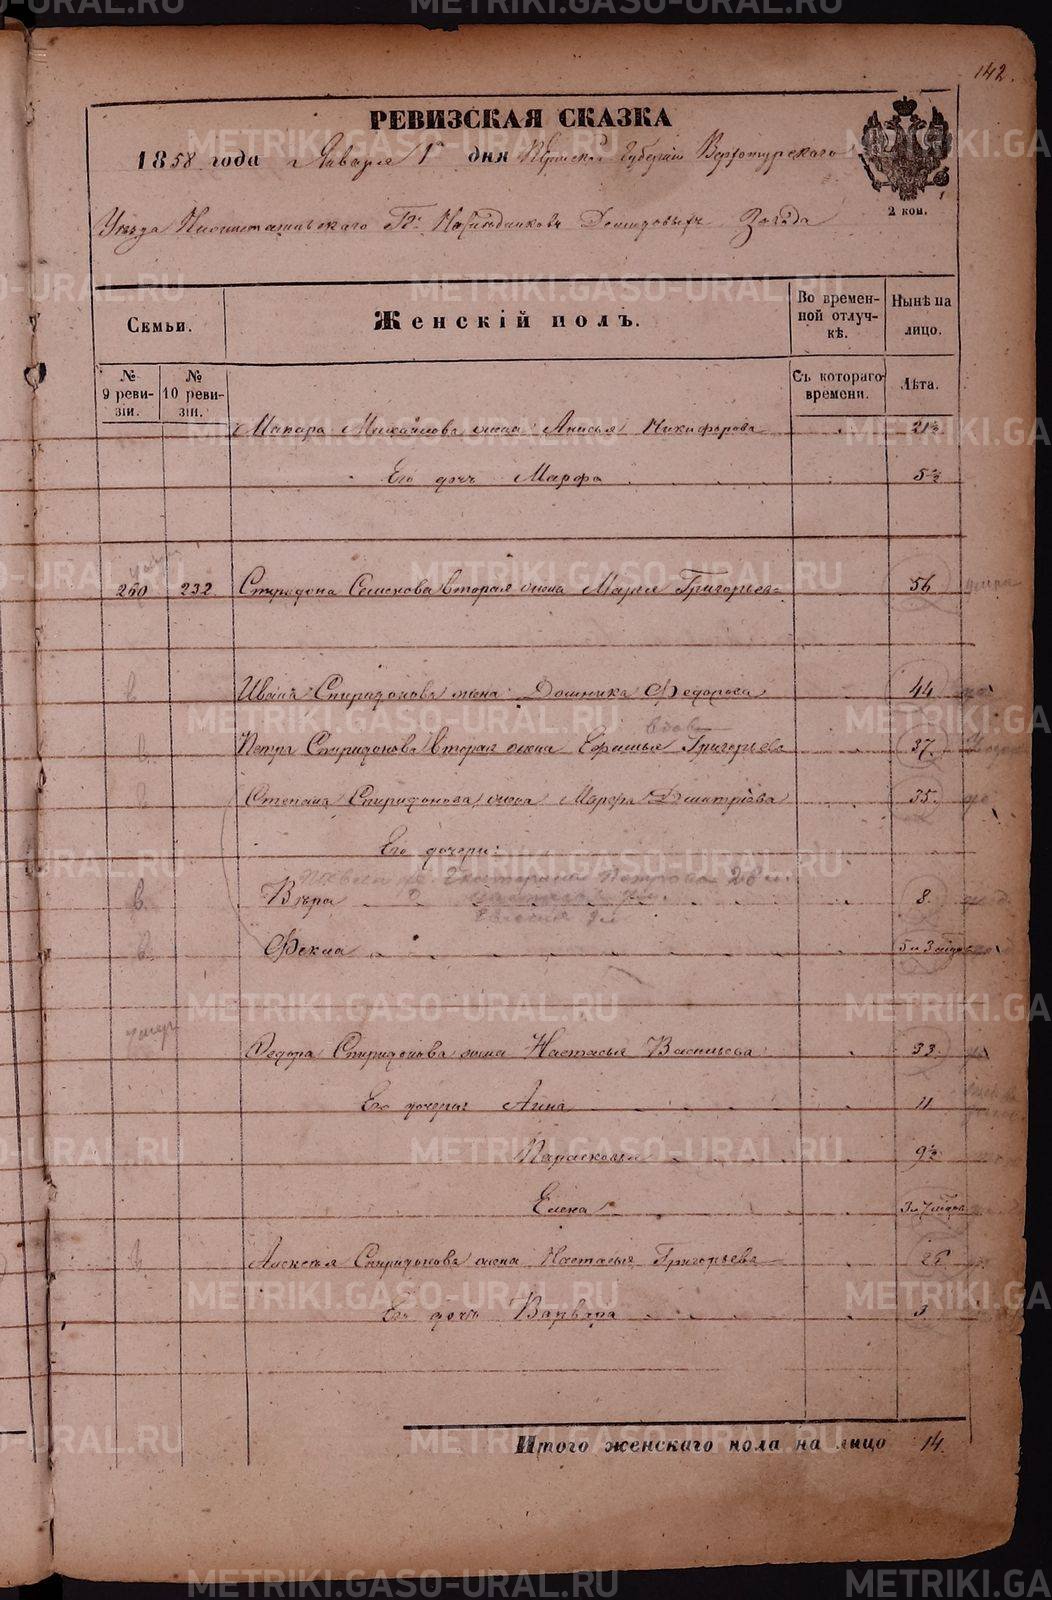 142.
РЕВИЗСКАЯ СКАЗКА
1858 года Января 1го дня Пермской Губернии Верхотурского
2 коп.
Уезда Нижнетагильского Гг. Наследников Демидовых Завода
Семьи.
Женскій полъ.
Во времен-
ной отлуч-
кѣ.
Нынѣ на
лицо.
№
9 реви-
зіи.
№
10 реви-
зіи.
Съ котораго
времени.
Лѣта.
Макара Михайлова жена Анисья Никифорова 21½
Его дочь Марфа 5½
260 232 Спиридона Семенова вторая жена Марья Григорьева 56
Ивана Спиридонова жена Домника Федорова 44
вдова
Петра Спиридонова вторая жена Ефимья Григорьева 37
Степана Спиридонова жена Марфа Дмитріева 35
Его дочери:
Екатерина Петрова 28 л.
Вѣра 8
Фекла 5 и 3 мѣсяц.
умер
Федора Спиридонова жена Настасья Васильева 33
Его дочери Анна 11
Парасковья 9½
Елена 3 и 7 мѣсяц.
Алексея Спиридонова жена Настасья Григорьева 26
Его дочь Варвара 3
Итого женскаго пола на лицо 14
METRIKI.GASO-URAL.RU